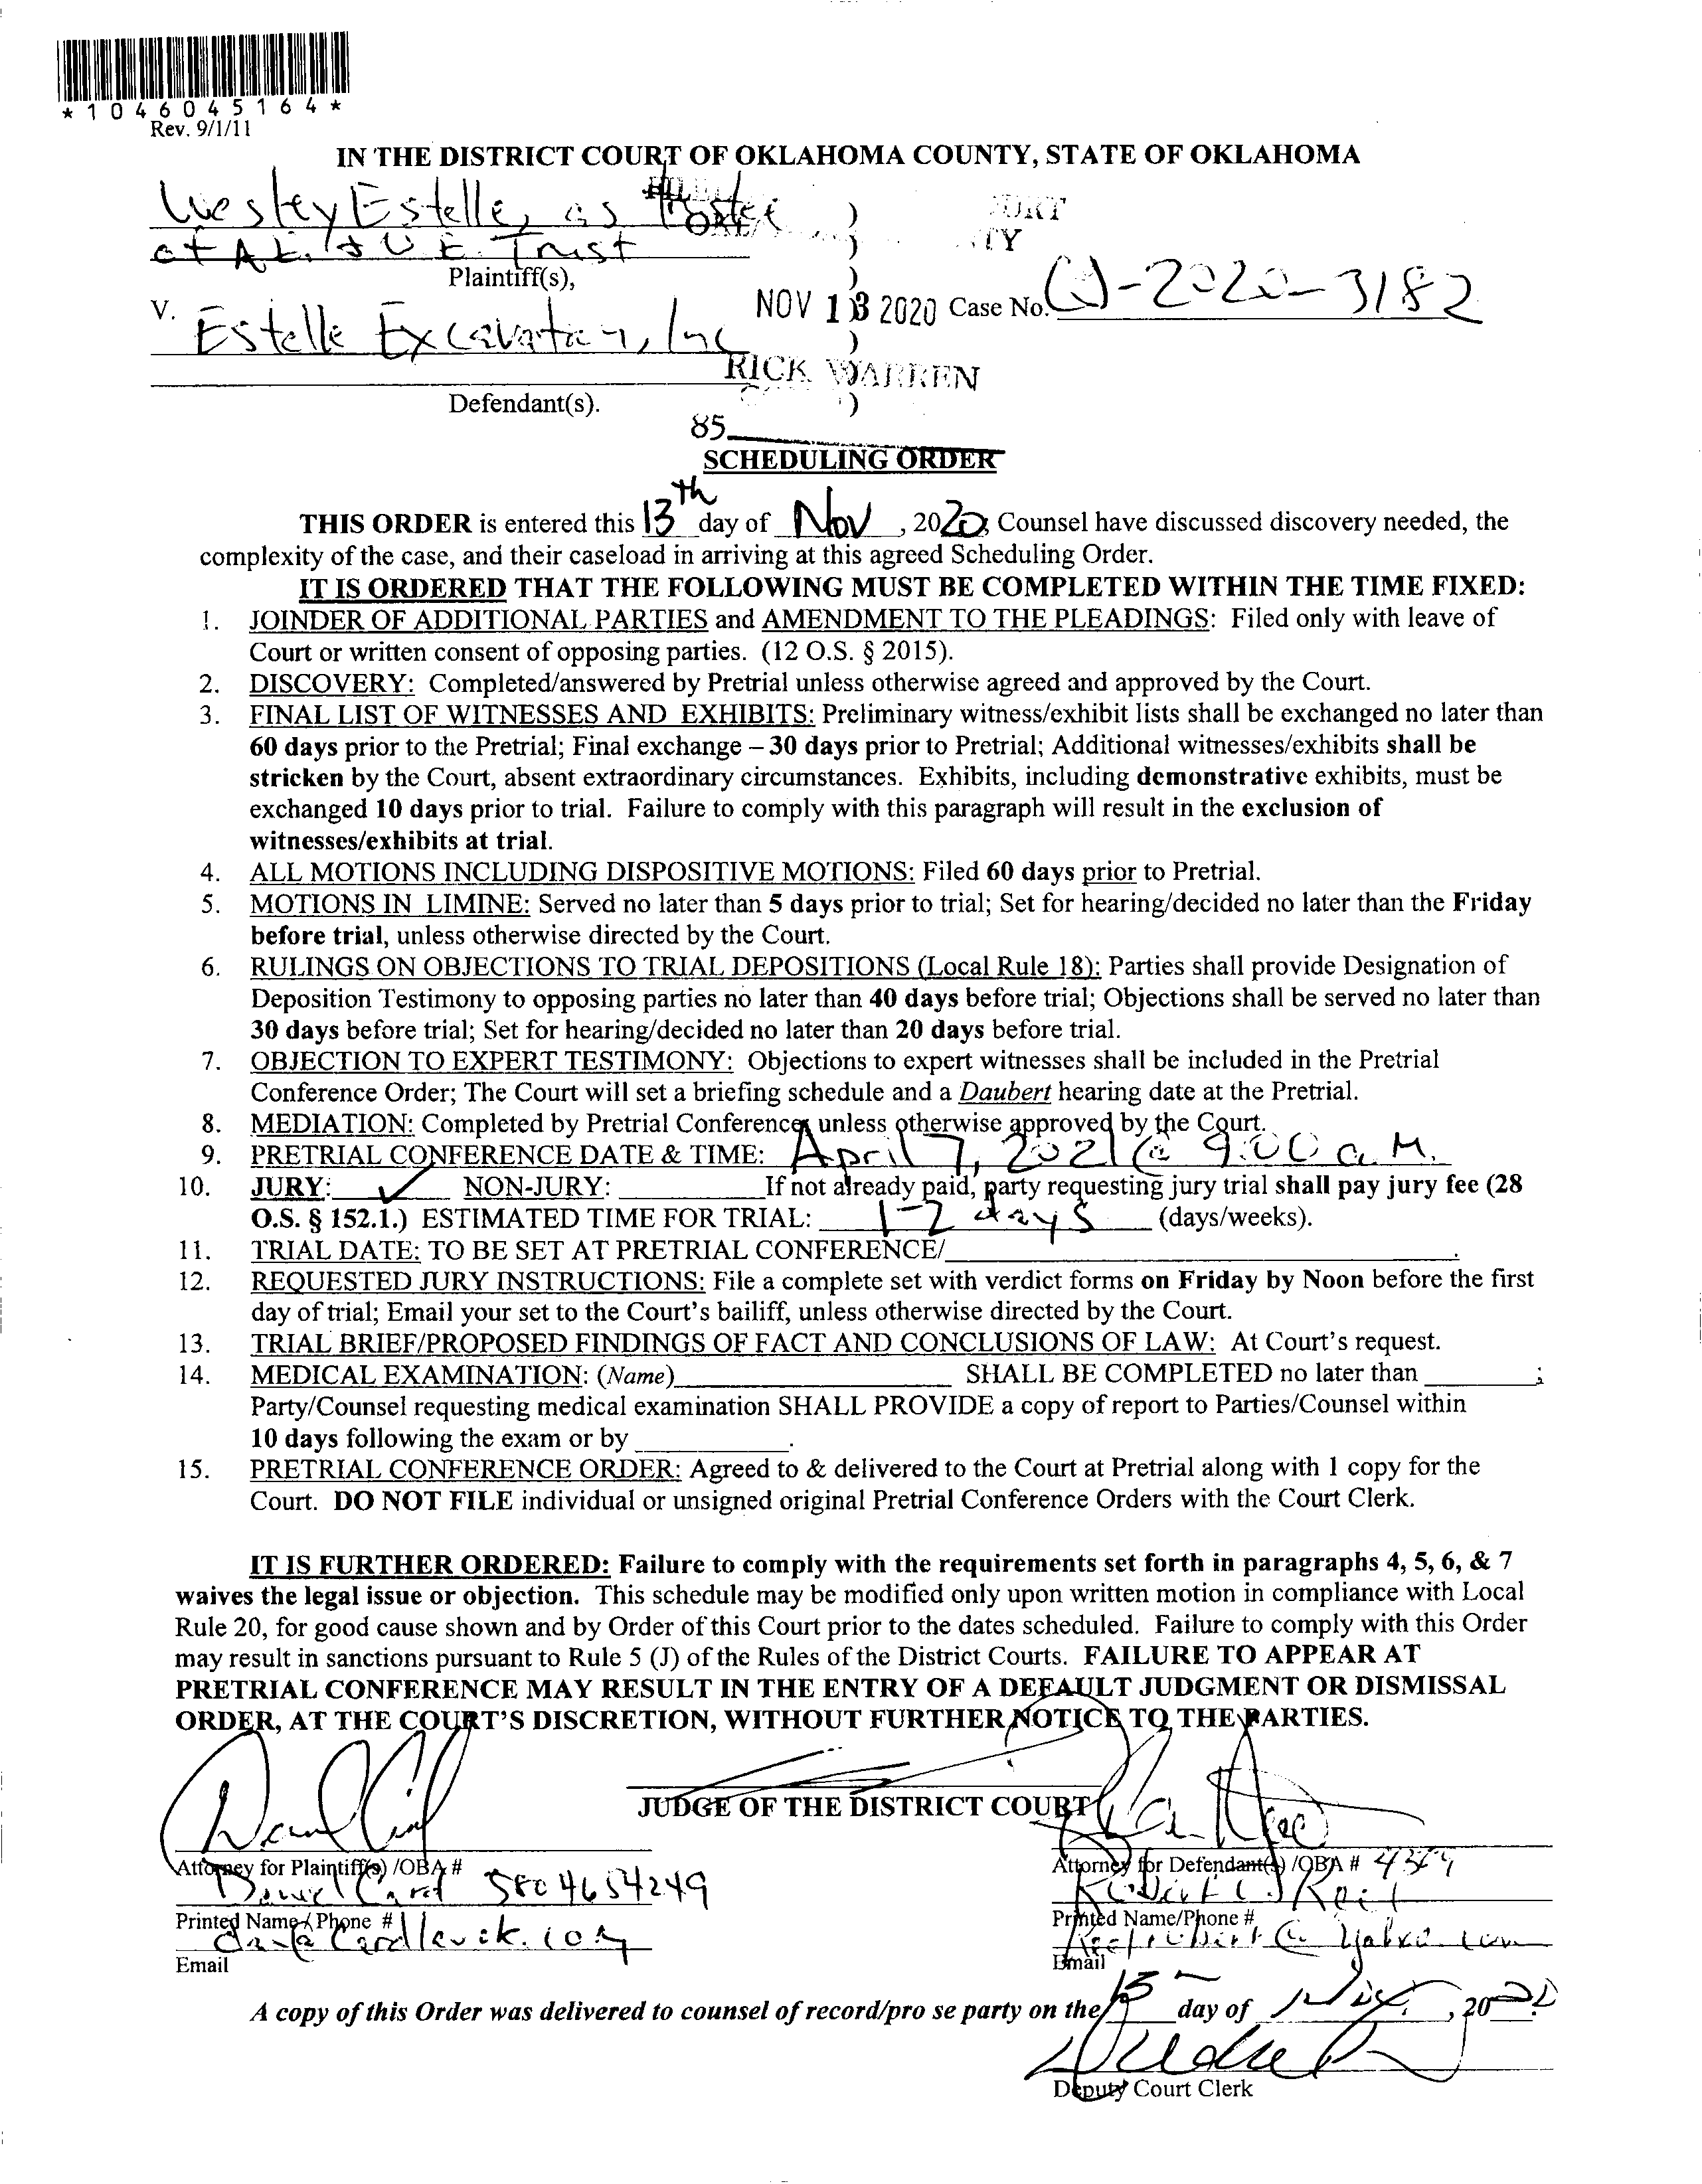 *1046045164*
Rev. 9/1/11
IN THE DISTRICT COURT OF OKLAHOMA COUNTY, STATE OF OKLAHOMA
Wesley Estelle, as Trustee )
of A.E. & V.E. Trust )
Plaintiff(s), )
v. NOV 13 2020 Case No. CJ-2020-3182
Estelle Excavation, Inc )
RICK WARREN
Defendant(s). )
85
SCHEDULING ORDER
THIS ORDER is entered this 13th day of Nov, 2020; Counsel have discussed discovery needed, the
complexity of the case, and their caseload in arriving at this agreed Scheduling Order.
IT IS ORDERED THAT THE FOLLOWING MUST BE COMPLETED WITHIN THE TIME FIXED:
1. JOINDER OF ADDITIONAL PARTIES and AMENDMENT TO THE PLEADINGS: Filed only with leave of
Court or written consent of opposing parties. (12 O.S. § 2015).
2. DISCOVERY: Completed/answered by Pretrial unless otherwise agreed and approved by the Court.
3. FINAL LIST OF WITNESSES AND EXHIBITS: Preliminary witness/exhibit lists shall be exchanged no later than
60 days prior to the Pretrial; Final exchange – 30 days prior to Pretrial; Additional witnesses/exhibits shall be
stricken by the Court, absent extraordinary circumstances. Exhibits, including demonstrative exhibits, must be
exchanged 10 days prior to trial. Failure to comply with this paragraph will result in the exclusion of
witnesses/exhibits at trial.
4. ALL MOTIONS INCLUDING DISPOSITIVE MOTIONS: Filed 60 days prior to Pretrial.
5. MOTIONS IN LIMINE: Served no later than 5 days prior to trial; Set for hearing/decided no later than the Friday
before trial, unless otherwise directed by the Court.
6. RULINGS ON OBJECTIONS TO TRIAL DEPOSITIONS (Local Rule 18): Parties shall provide Designation of
Deposition Testimony to opposing parties no later than 40 days before trial; Objections shall be served no later than
30 days before trial; Set for hearing/decided no later than 20 days before trial.
7. OBJECTION TO EXPERT TESTIMONY: Objections to expert witnesses shall be included in the Pretrial
Conference Order; The Court will set a briefing schedule and a Daubert hearing date at the Pretrial.
8. MEDIATION: Completed by Pretrial Conference, unless otherwise approved by the Court.
9. PRETRIAL CONFERENCE DATE & TIME: April 7, 2021 @ 9:00 a.M.
10. JURY: ✓ NON-JURY: If not already paid, party requesting jury trial shall pay jury fee (28
O.S. § 152.1.) ESTIMATED TIME FOR TRIAL: 1-2 days (days/weeks).
11. TRIAL DATE: TO BE SET AT PRETRIAL CONFERENCE/ .
12. REQUESTED JURY INSTRUCTIONS: File a complete set with verdict forms on Friday by Noon before the first
day of trial; Email your set to the Court's bailiff, unless otherwise directed by the Court.
13. TRIAL BRIEF/PROPOSED FINDINGS OF FACT AND CONCLUSIONS OF LAW: At Court's request.
14. MEDICAL EXAMINATION: (Name) SHALL BE COMPLETED no later than ;
Party/Counsel requesting medical examination SHALL PROVIDE a copy of report to Parties/Counsel within
10 days following the exam or by .
15. PRETRIAL CONFERENCE ORDER: Agreed to & delivered to the Court at Pretrial along with 1 copy for the
Court. DO NOT FILE individual or unsigned original Pretrial Conference Orders with the Court Clerk.
IT IS FURTHER ORDERED: Failure to comply with the requirements set forth in paragraphs 4, 5, 6, & 7
waives the legal issue or objection. This schedule may be modified only upon written motion in compliance with Local
Rule 20, for good cause shown and by Order of this Court prior to the dates scheduled. Failure to comply with this Order
may result in sanctions pursuant to Rule 5 (J) of the Rules of the District Courts. FAILURE TO APPEAR AT
PRETRIAL CONFERENCE MAY RESULT IN THE ENTRY OF A DEFAULT JUDGMENT OR DISMISSAL
ORDER, AT THE COURT'S DISCRETION, WITHOUT FURTHER NOTICE TO THE PARTIES.
JUDGE OF THE DISTRICT COURT
Attorney for Plaintiff(s) /OBA # Attorney for Defendant(s) /OBA #
Daniel Card 5804654249
Printed Name / Phone # Printed Name/Phone #
Email Email
A copy of this Order was delivered to counsel of record/pro se party on the 13 day of Nov, 2020.
Deputy Court Clerk